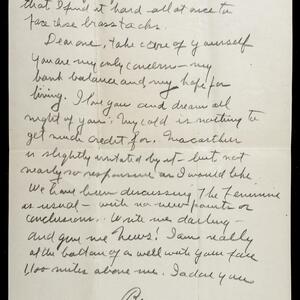 that I find it hard all at once to
face these brass tacks.
Dear one, take care of yourself
you are my only concern – my
bank balance and my hope for
living. I love you and dream all
night of you. My cold is nothing to
get much credit for. Macarthur
is slightly irritated by it – but not
nearly so responsive as I would like
We have been discussing the feminine
as usual – with no new points or
conclusions. Write me, darling –
and give me News! I am really
at the bottom of a well with your face
1100 miles above me. I adore you